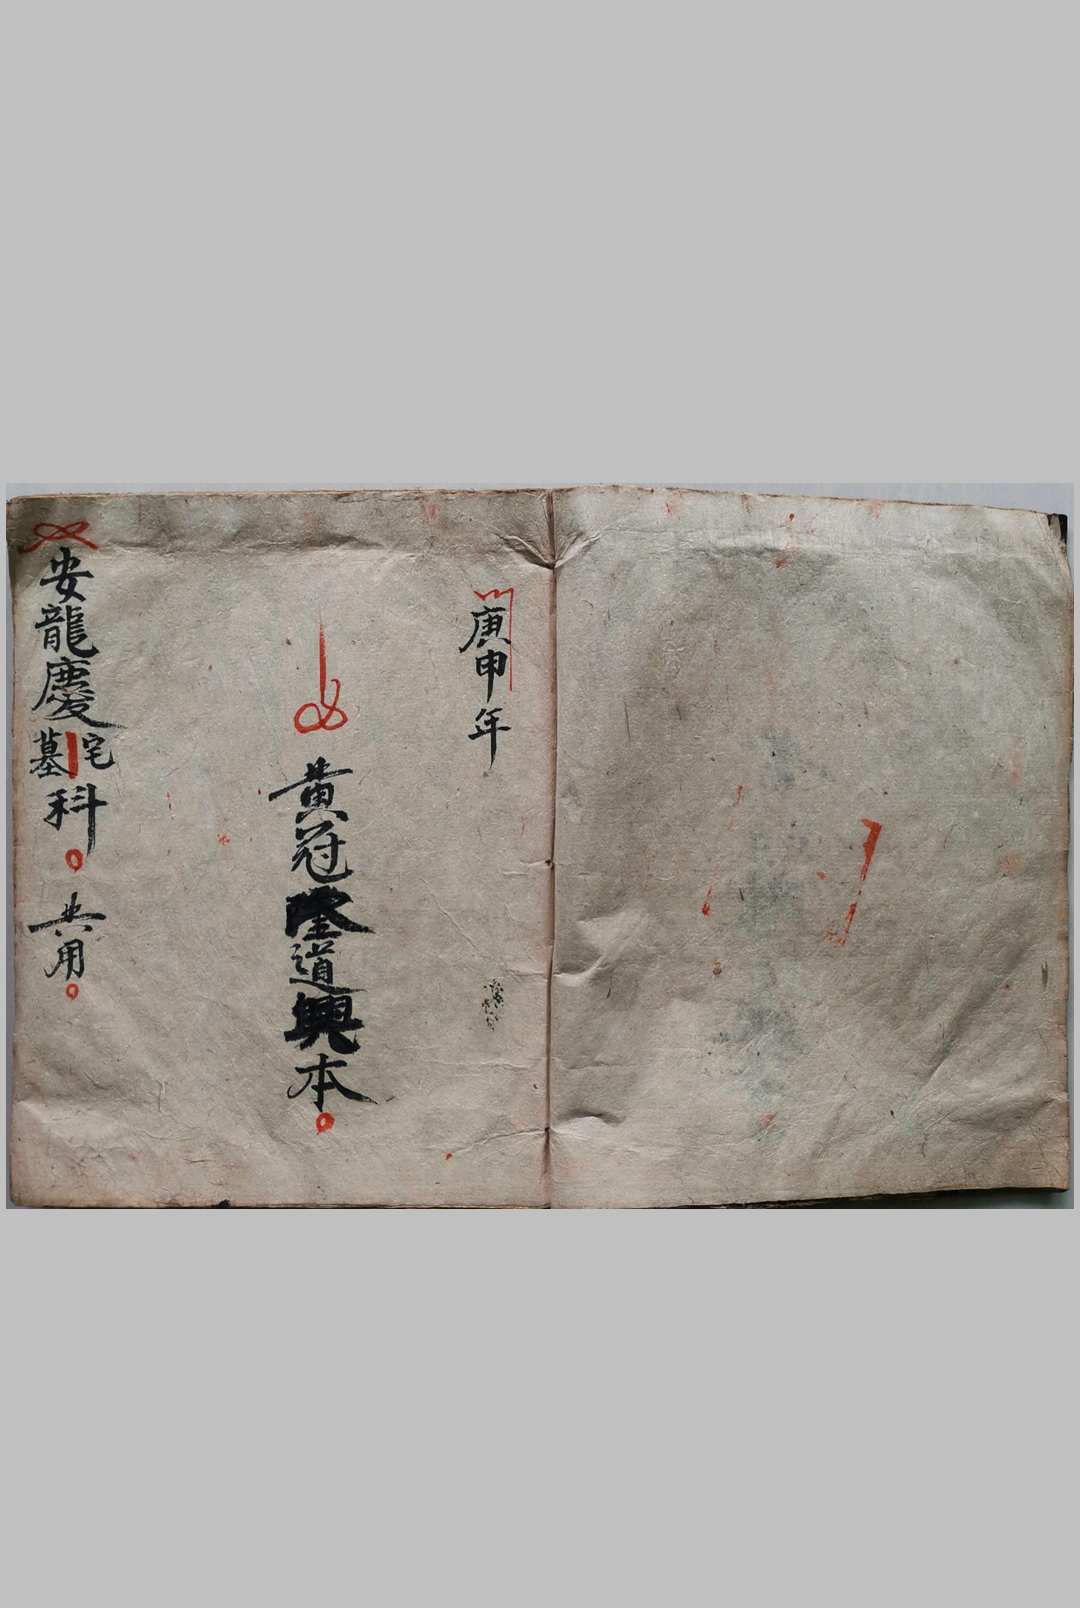 庚申年
黄冠隆道興本
安龍慶宅墓科 共用